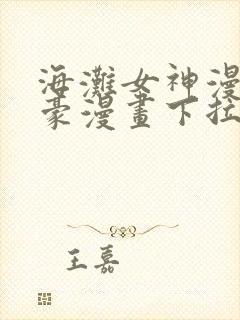 海灘女神漫
豪漫畫下拉
王嘉